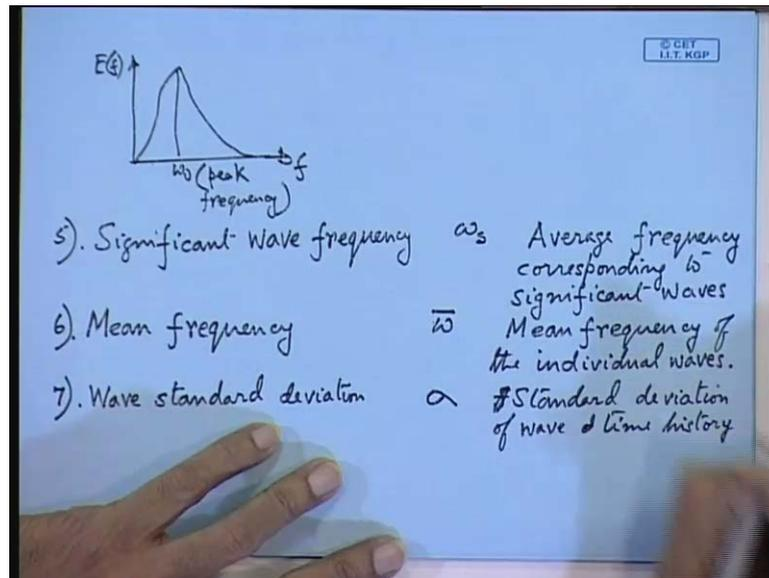 © CET
I.I.T. KGP
E(f)
f
ω₀ (peak
frequency)
5). Significant wave frequency ωs Average frequency
corresponding to
significant waves
6). Mean frequency ω̅ Mean frequency of
the individual waves.
7). Wave standard deviation σ Standard deviation
of wave time history